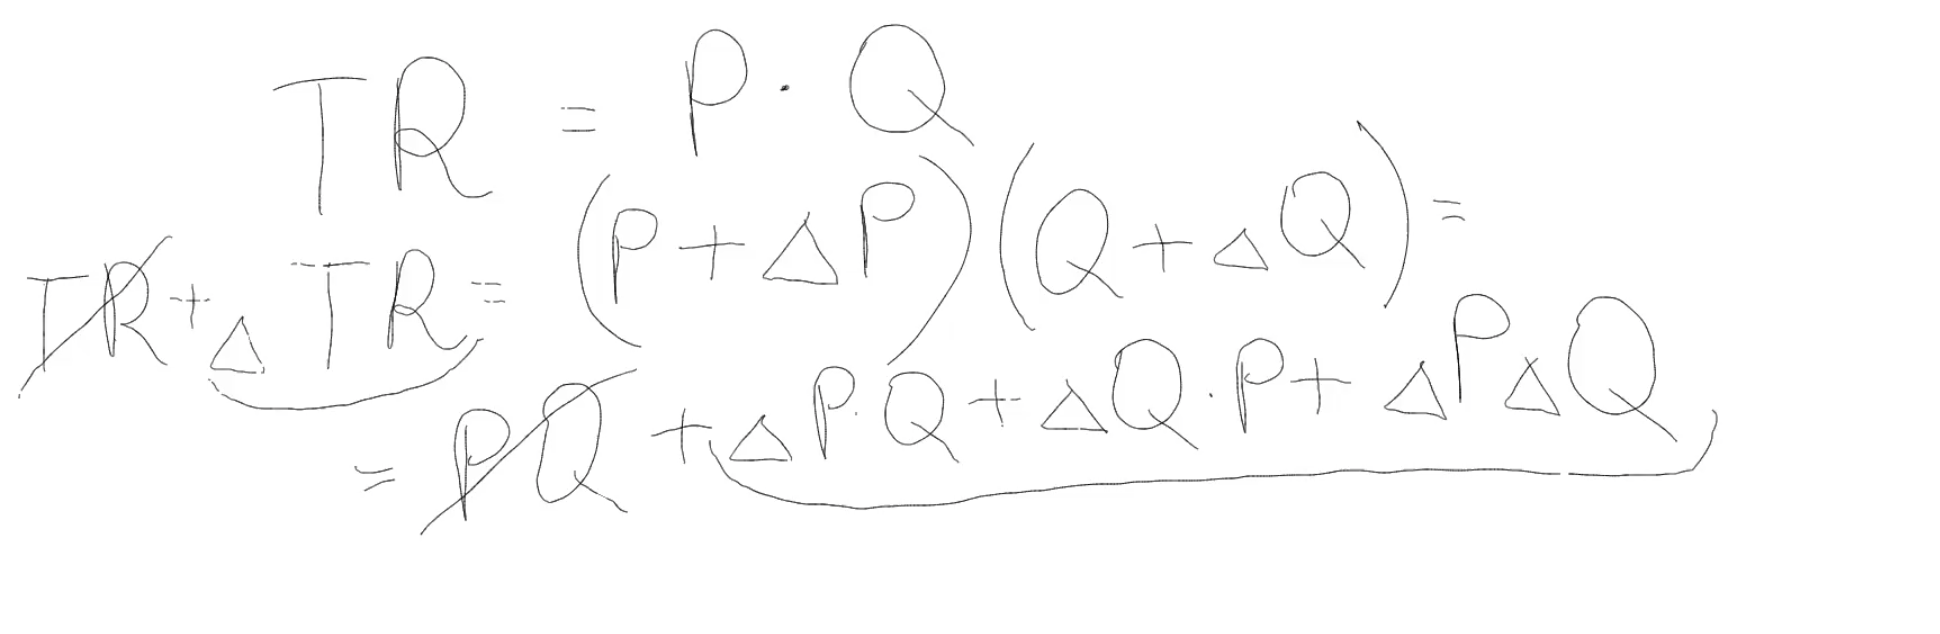 TR = P · Q
TR + ΔTR = (P + ΔP)(Q + ΔQ) =
= PQ + ΔP·Q + ΔQ·P + ΔPΔQ